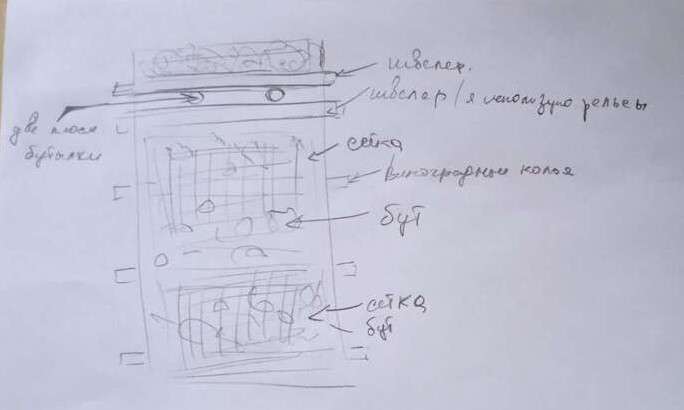 швелер.
швелер/я использую рельсы
две плоск
бутылки
сетка
виноградные колья
бут
сетка
бут